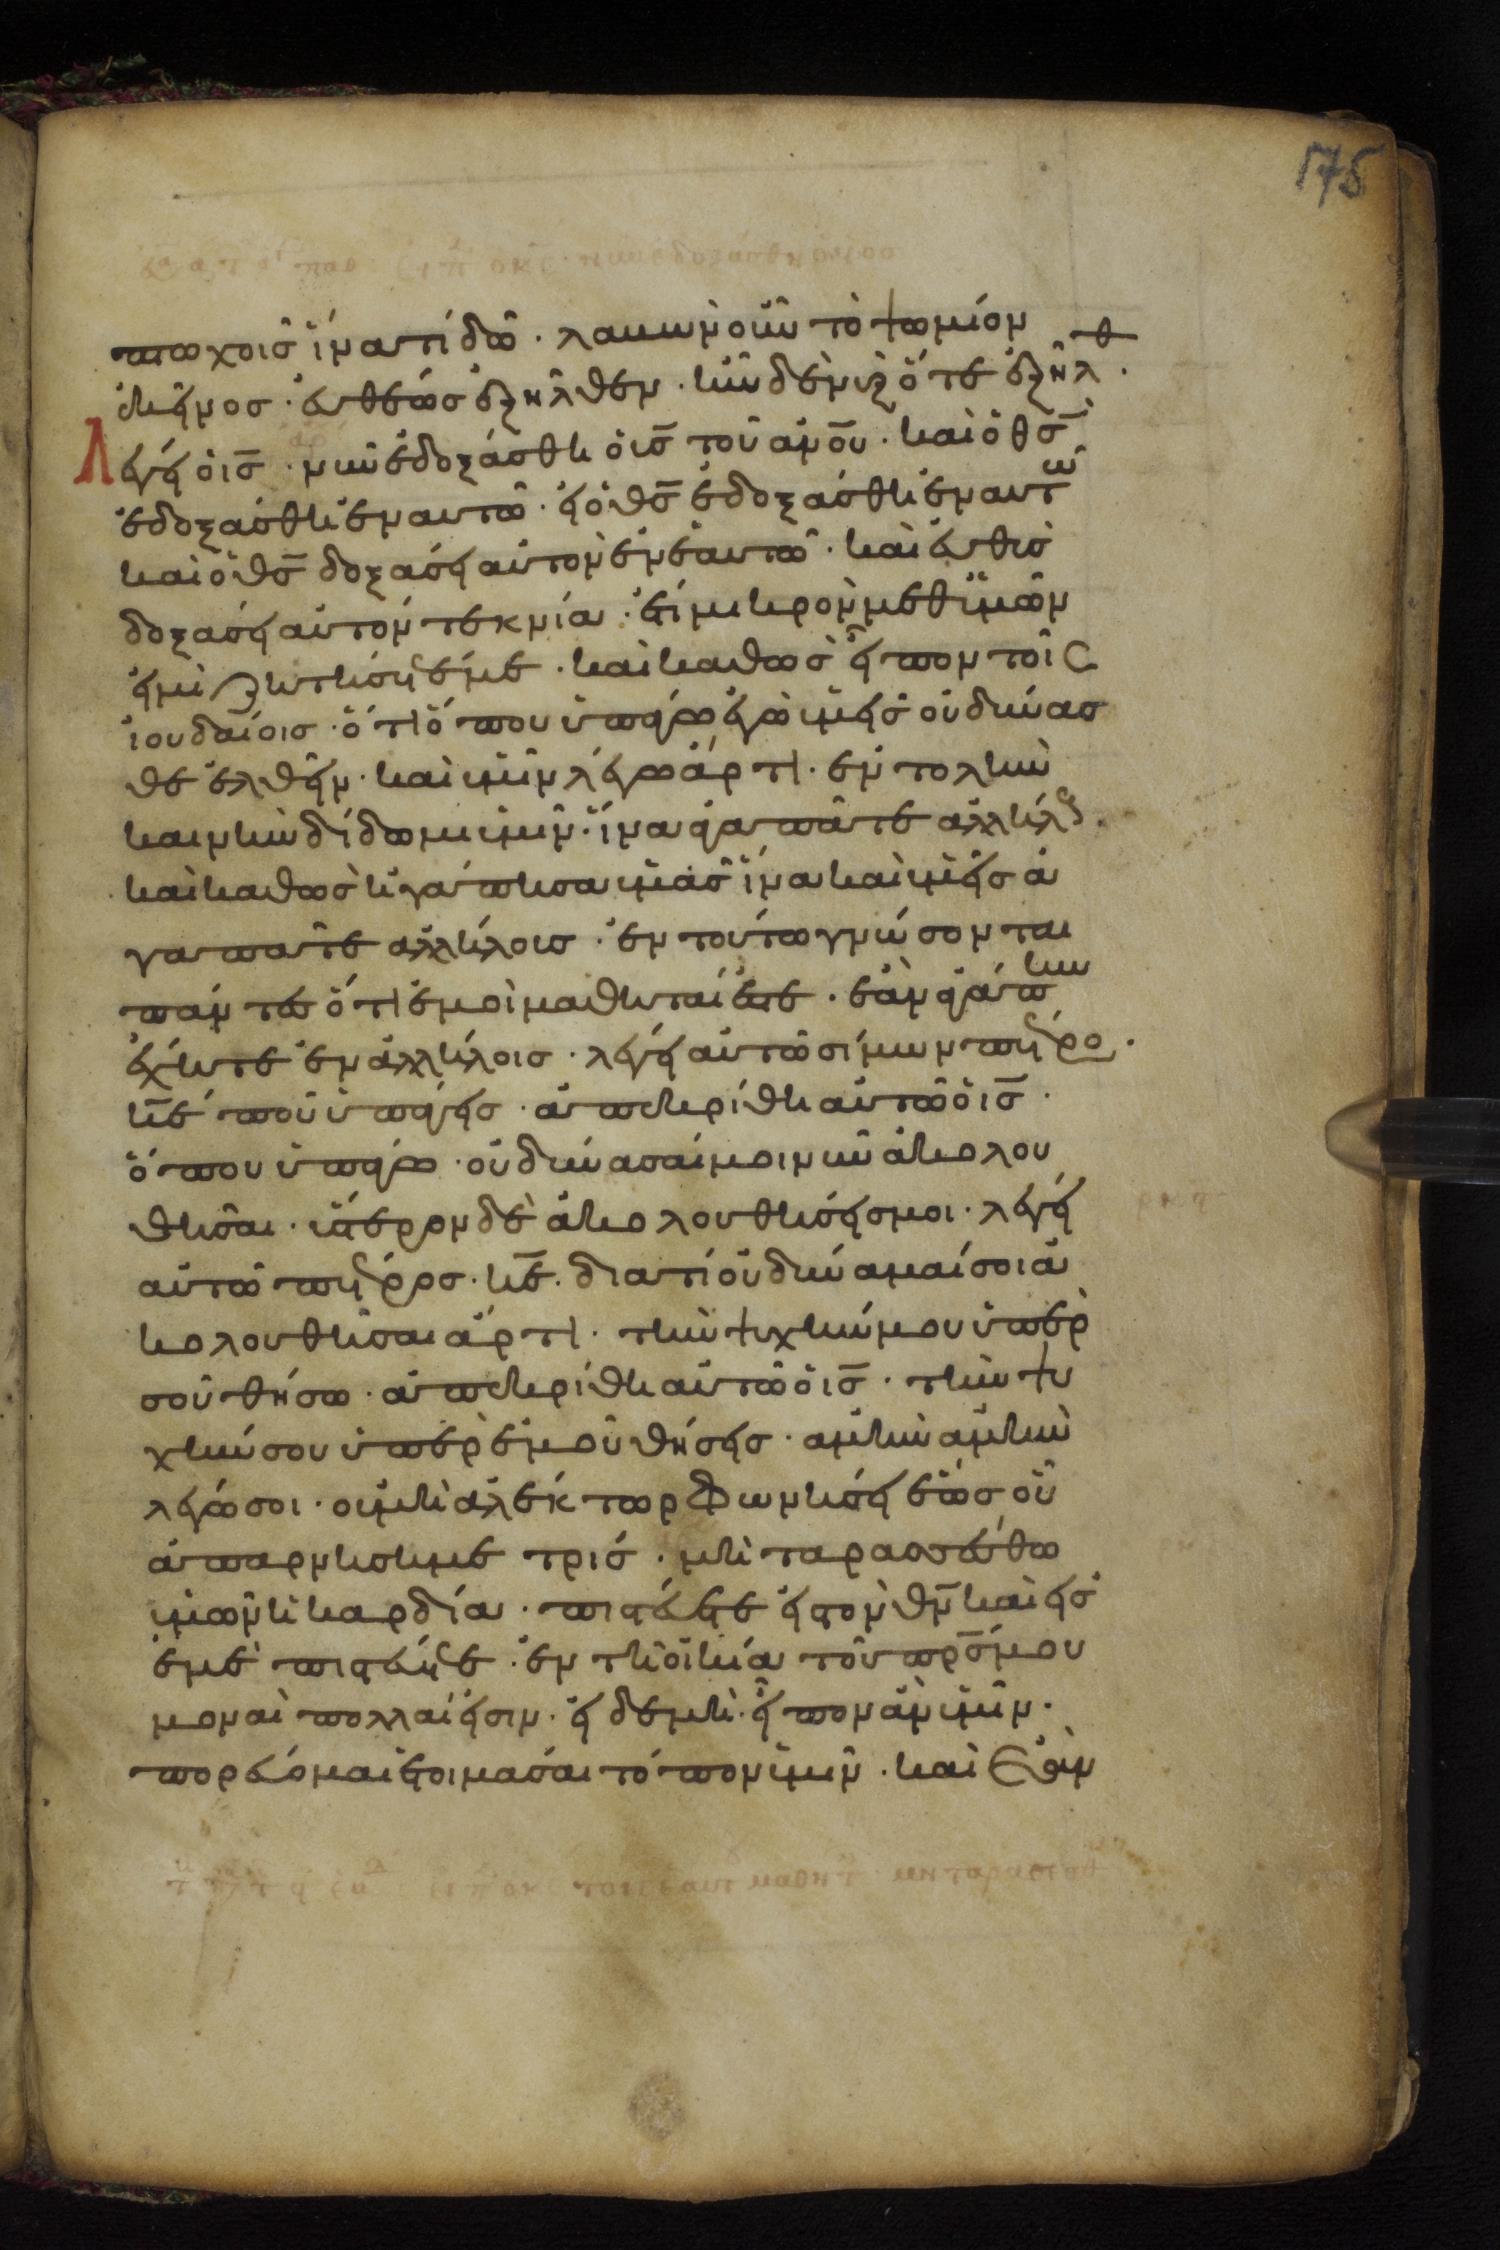 175
πτωχοῖς ἵνα τι δῶ · λαβὼν οὖν τὸ ψωμίον
ἐκεῖνος · εὐθέως ἐξῆλθεν · ἦν δὲ νὺξ ὅτε ἐξῆλθ ·
Λέγει ὁ ις̅ · νῦν ἐδοξάσθη ὁ υς̅ τοῦ ἀνο̅υ · καὶ ὁ θς̅
ἐδοξάσθη ἐν αυτῶ · εἰ ὁ θς̅ ἐδοξάσθη ἐν αυτῶ
καὶ ὁ θς̅ δοξάσει αὐτὸν ἐν ἑαυτῶ · καὶ εὐθὺς
δοξάσει αὐτόν τεκνία · ἔτι μικρον μεθ ὑμῶν
εἰμὶ ζητήσητέ με · καὶ καθὼς εἶπον τοῖς
ἰουδαίοις · ὅτι ὅπου ὑπάγω ἐγὼ ὑμεῖς οὐ δύνασ
θε ἐλθεῖν · καὶ ὑμῖν λέγω ἄρτι · ἐντολὴν
καινὴν δίδωμι ὑμῖν · ἵνα ἀγαπᾶτε ἀλλήλους ·
καὶ καθὼς ἠγάπησα ὑμᾶς ἵνα καὶ ὑμεῖς ἀ
γαπᾶτε ἀλλήλοις · ἐν τούτω γνώσονται
πάντες ὅτι ἐμοὶ μαθηταί ἐστε · ἐὰν ἀγάπην
ἔχητε ἐν ἀλλήλοις · λέγει αὐτῶ σίμων πέτρο ·
κε̅ ποῦ ὑπάγεις · ἀπεκρίθη αὐτῶ ὁ ις̅ ·
ὅπου ὑπάγω · οὐ δύνασαί μοι νῦν ἀκολου
θῆσαι · ὕστερον δὲ ἀκολουθήσεις μοι · λέγει
αὐτῶ πέτρος · κε̅ · διατί οὐ δύναμαί σοι ἀ
κολουθῆσαι ἄρτι · τὴν ψυχήν μου ὑπὲρ
σοῦ θήσω · ἀπεκρίθη αὐτῶ ὁ ις̅ · τὴν ψυ
χήν σου ὑπὲρ ἐμοῦ θήσεις · ἀμὴν ἀμὴν
λέγω σοι · οὐ μὴ ἀλέκτωρ φωνήσει ἕως οὗ
ἀπαρνήση με τρίς · μὴ ταρασσέσθω
ὑμῶν ἡ καρδία · πιστεύετε εἰς τὸν θν̅ καὶ εἰς
ἐμὲ πιστεύετε · ἐν τῆ οἰκία τοῦ πρς̅ μου
μοναὶ πολλαί εἰσιν · εἰ δὲ μὴ · εἶπον ἂν ὑμῖν ·
πορεύομαι ἑτοιμάσαι τόπον ὑμῖν · καὶ ἐὰν